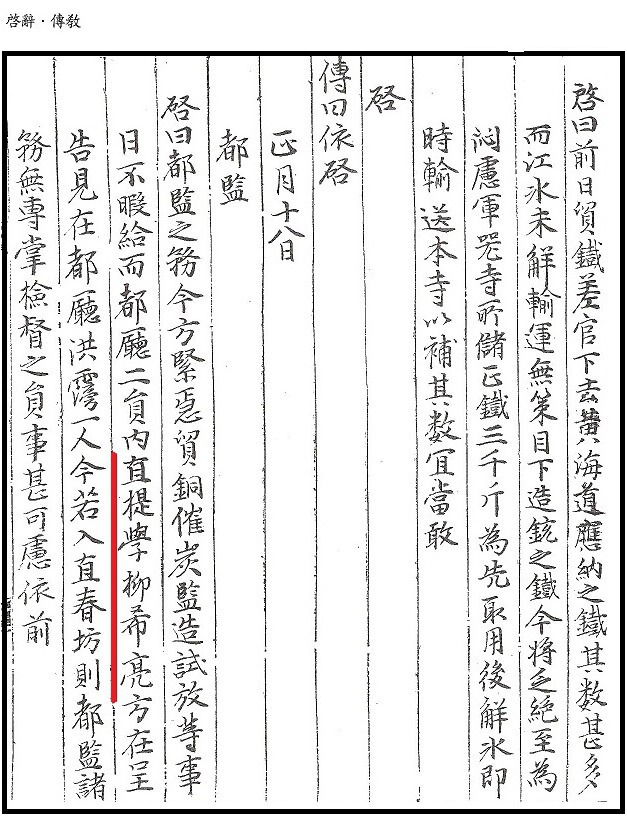 啓辭・傳敎
啓曰前日貿鐵差官下去黃海道應納之鐵其數甚多
而江水未解輸運無策目下造銃之鐵今將乏絶至爲
悶慮軍器寺所儲正鐵三千斤爲先取用後解氷即
時輸送本寺以補其數宜當敢
啓
傳曰依啓
正月十八日
都監
啓曰都監之務今方緊急貿銅催炭監造試放等事
日不暇給而都廳二員內直提學柳希亮方在呈
告見在都廳洪霶一人今若入直春坊則都監諸
務無專掌檢督之員事甚可慮依前